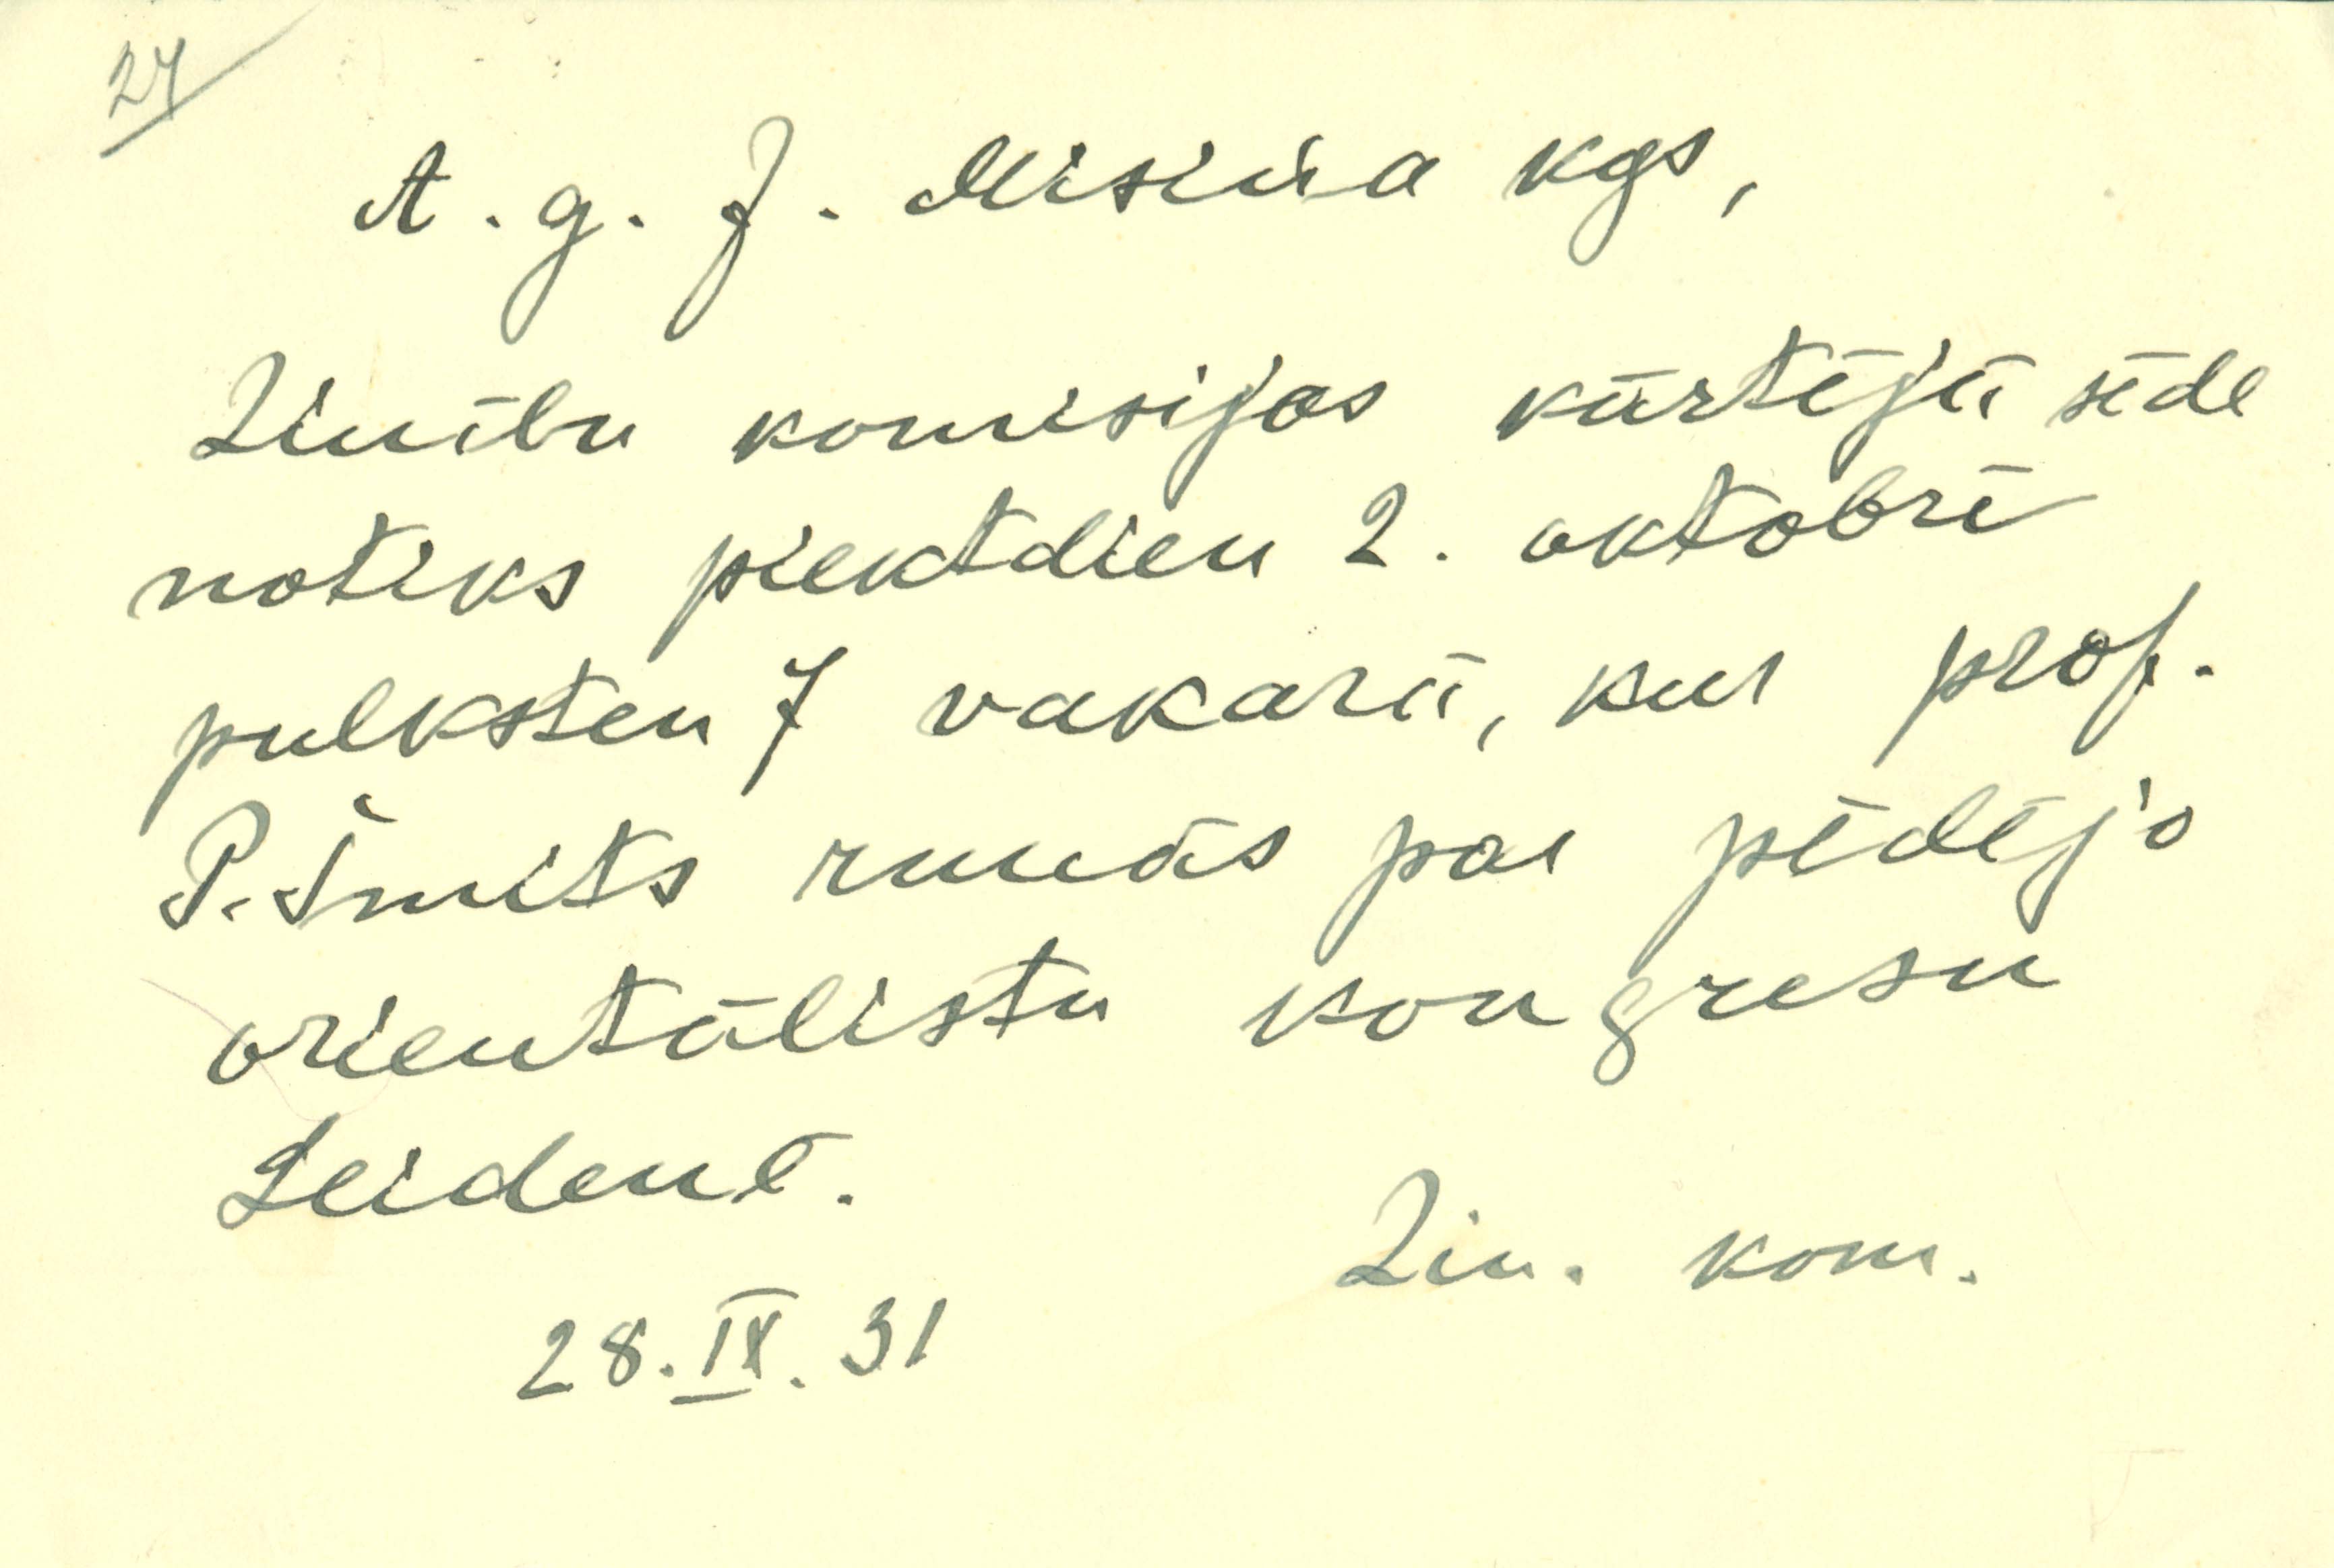 27
A. g. J. Misiņa kgs,
Zinību komisijas kārtējā sēde
notiks piektdien 2. oktobrī
pulksten 7 vakarā, kur prof.
P. Šmits runās par pēdējo
orientālistu kongresu
Leidenē.
Zin. kom.
28. IX. 31